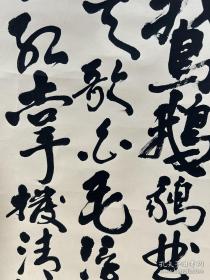 鵝鵝鵝曲
天歌白毛浮
红掌撥清